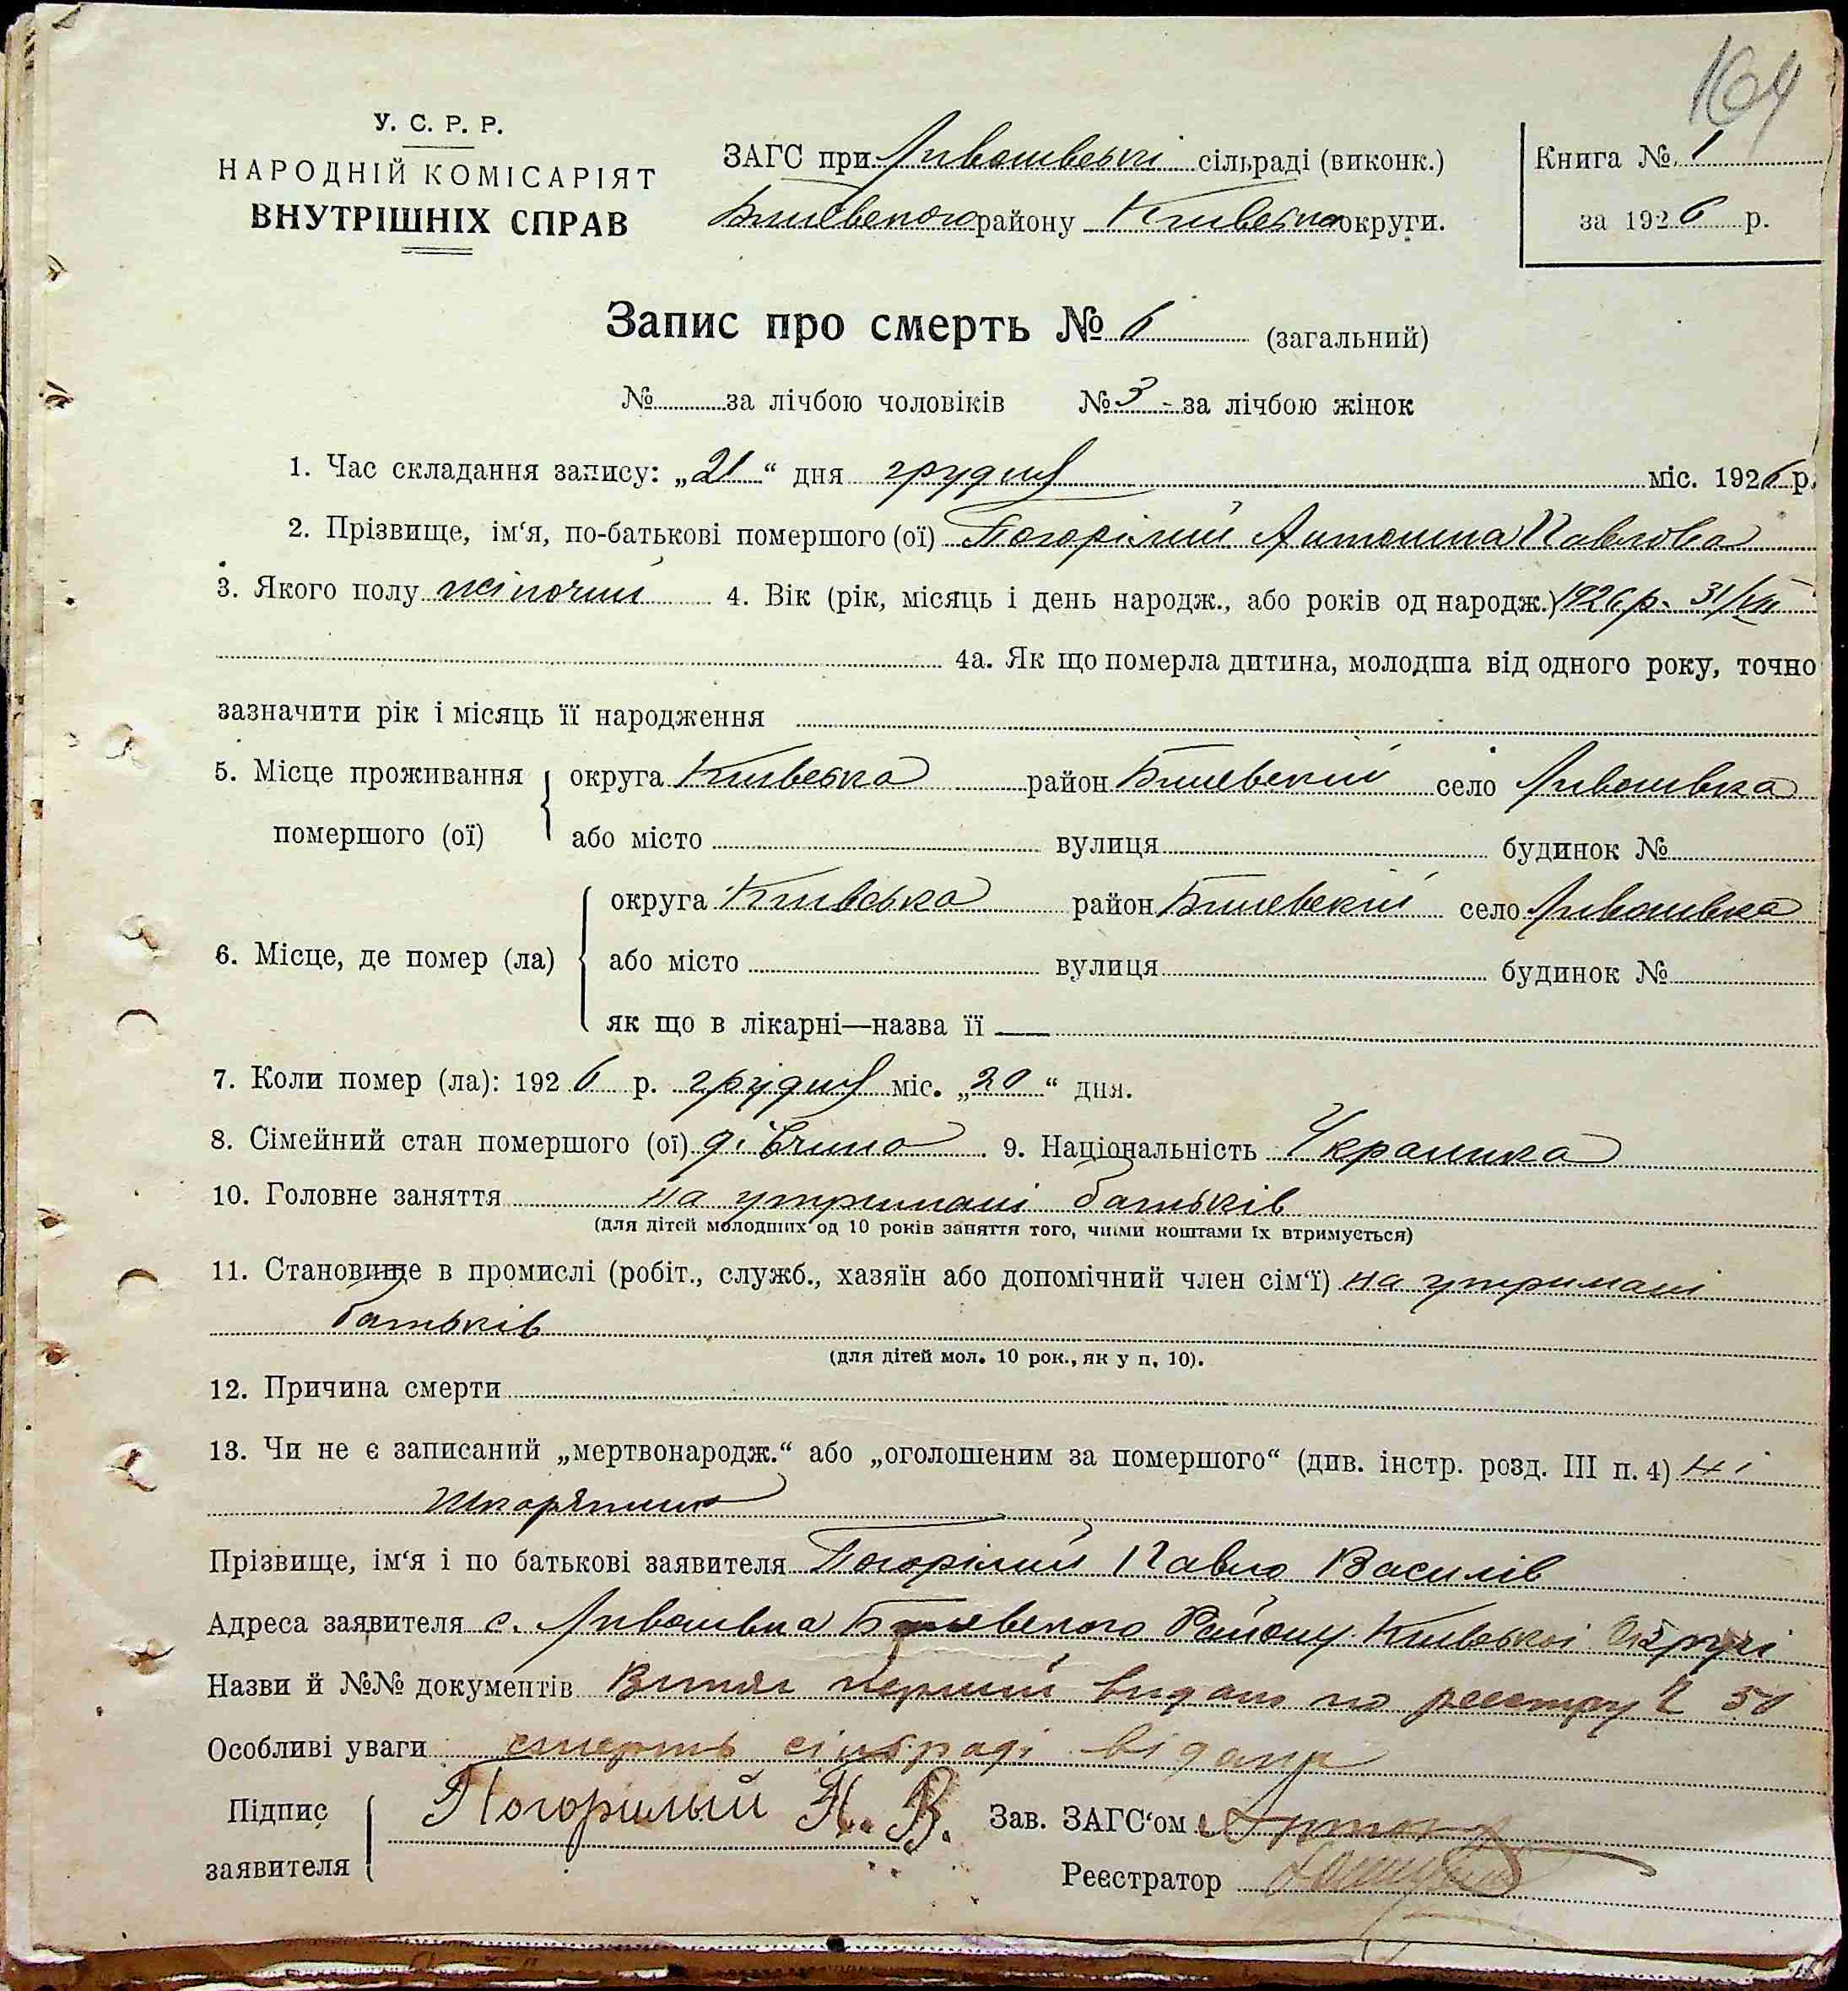 164
У. С. Р. Р.
НАРОДНІЙ КОМІСАРІЯТ
ВНУТРІШНІХ СПРАВ
ЗАГС при сільраді (виконк.)
району округи.
Книга № 1
за 1926 р.
Запис про смерть № 6 (загальний)
№ за лічбою чоловіків № 3 - за лічбою жінок
1. Час складання запису: „21“ дня грудня міс. 1926 р.
2. Прізвище, ім‘я, по-батькові помершого (ої) Погорілий Антонина Павлова
3. Якого полу жіночий 4. Вік (рік, місяць і день народж., або років од народж.) 1926 р. 31/VII
4а. Як що померла дитина, молодша від одного року, точно
зазначити рік і місяць її народження
5. Місце проживання помершого (ої) округа Київська район село
або місто вулиця будинок №
6. Місце, де помер (ла) округа Київська район село
або місто вулиця будинок №
як що в лікарні—назва її —
7. Коли помер (ла): 1926 р. грудня міс. „20“ дня.
8. Сімейний стан помершого (ої) дівчина. 9. Національність Українка
10. Головне заняття на утримані батьків
(для дітей молодших од 10 років заняття того, чиїми коштами їх втримується)
11. Становище в промислі (робіт., служб., хазяїн або допомічний член сім‘ї) на утримані
батьків
(для дітей мол. 10 рок., як у п. 10).
12. Причина смерти
13. Чи не є записаний „мертвонародж.“ або „оголошеним за помершого“ (див. інстр. розд. III п. 4) Ні
Прізвище, ім‘я і по батькові заявителя Погорілий Павло Василів
Адреса заявителя с. Району Київської Округи
Назви й №№ документів Витяг перший видано по реестру 50
Особливі уваги смерть сільраді
Підпис заявителя Погорилый П. В.
Зав. ЗАГС‘ом
Реєстратор